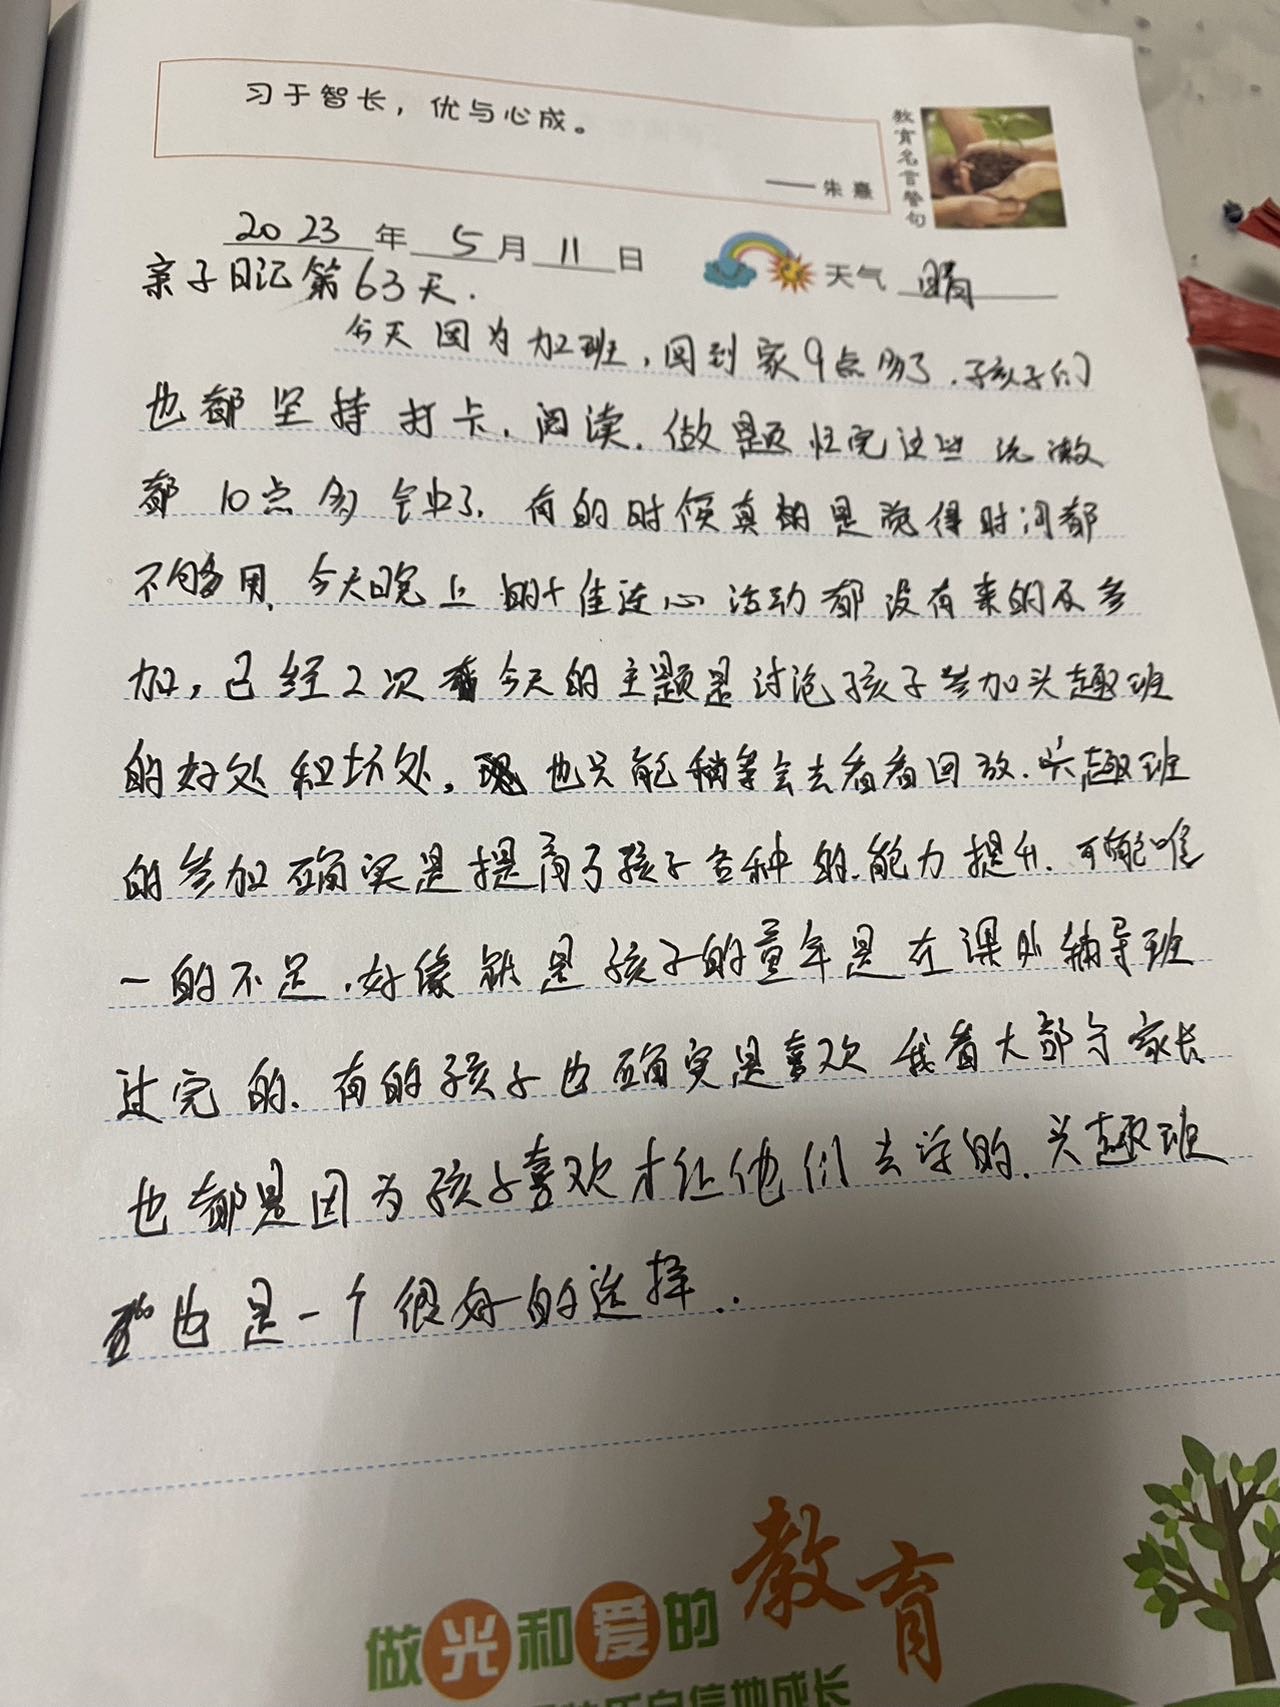 习于智长，优与心成。
——朱熹
教育名言警句
2023年5月11日
天气 晴
亲子日记第63天.
今天因为加班，回到家9点多了.孩子们
也都坚持打卡.阅读.做题 忙完这些 洗漱
都10点多钟了.有的时候真的是觉得时间都
不够用.今天晚上的十佳连心活动都没有来的及参
加，已经2次 今天的主题是讨论孩子参加兴趣班
的好处和坏处。也只能稍等会去看看回放.兴趣班
的参加确实是提高了孩子各种的.能力提升.可能唯
一的不足.好像就是孩子的童年是在课外辅导班
过完的.有的孩子也确实是喜欢 我看大部分家长
也都是因为孩子喜欢才让他们去学的.兴趣班
也是一个很好的选择..
做光和爱的教育
自信地成长